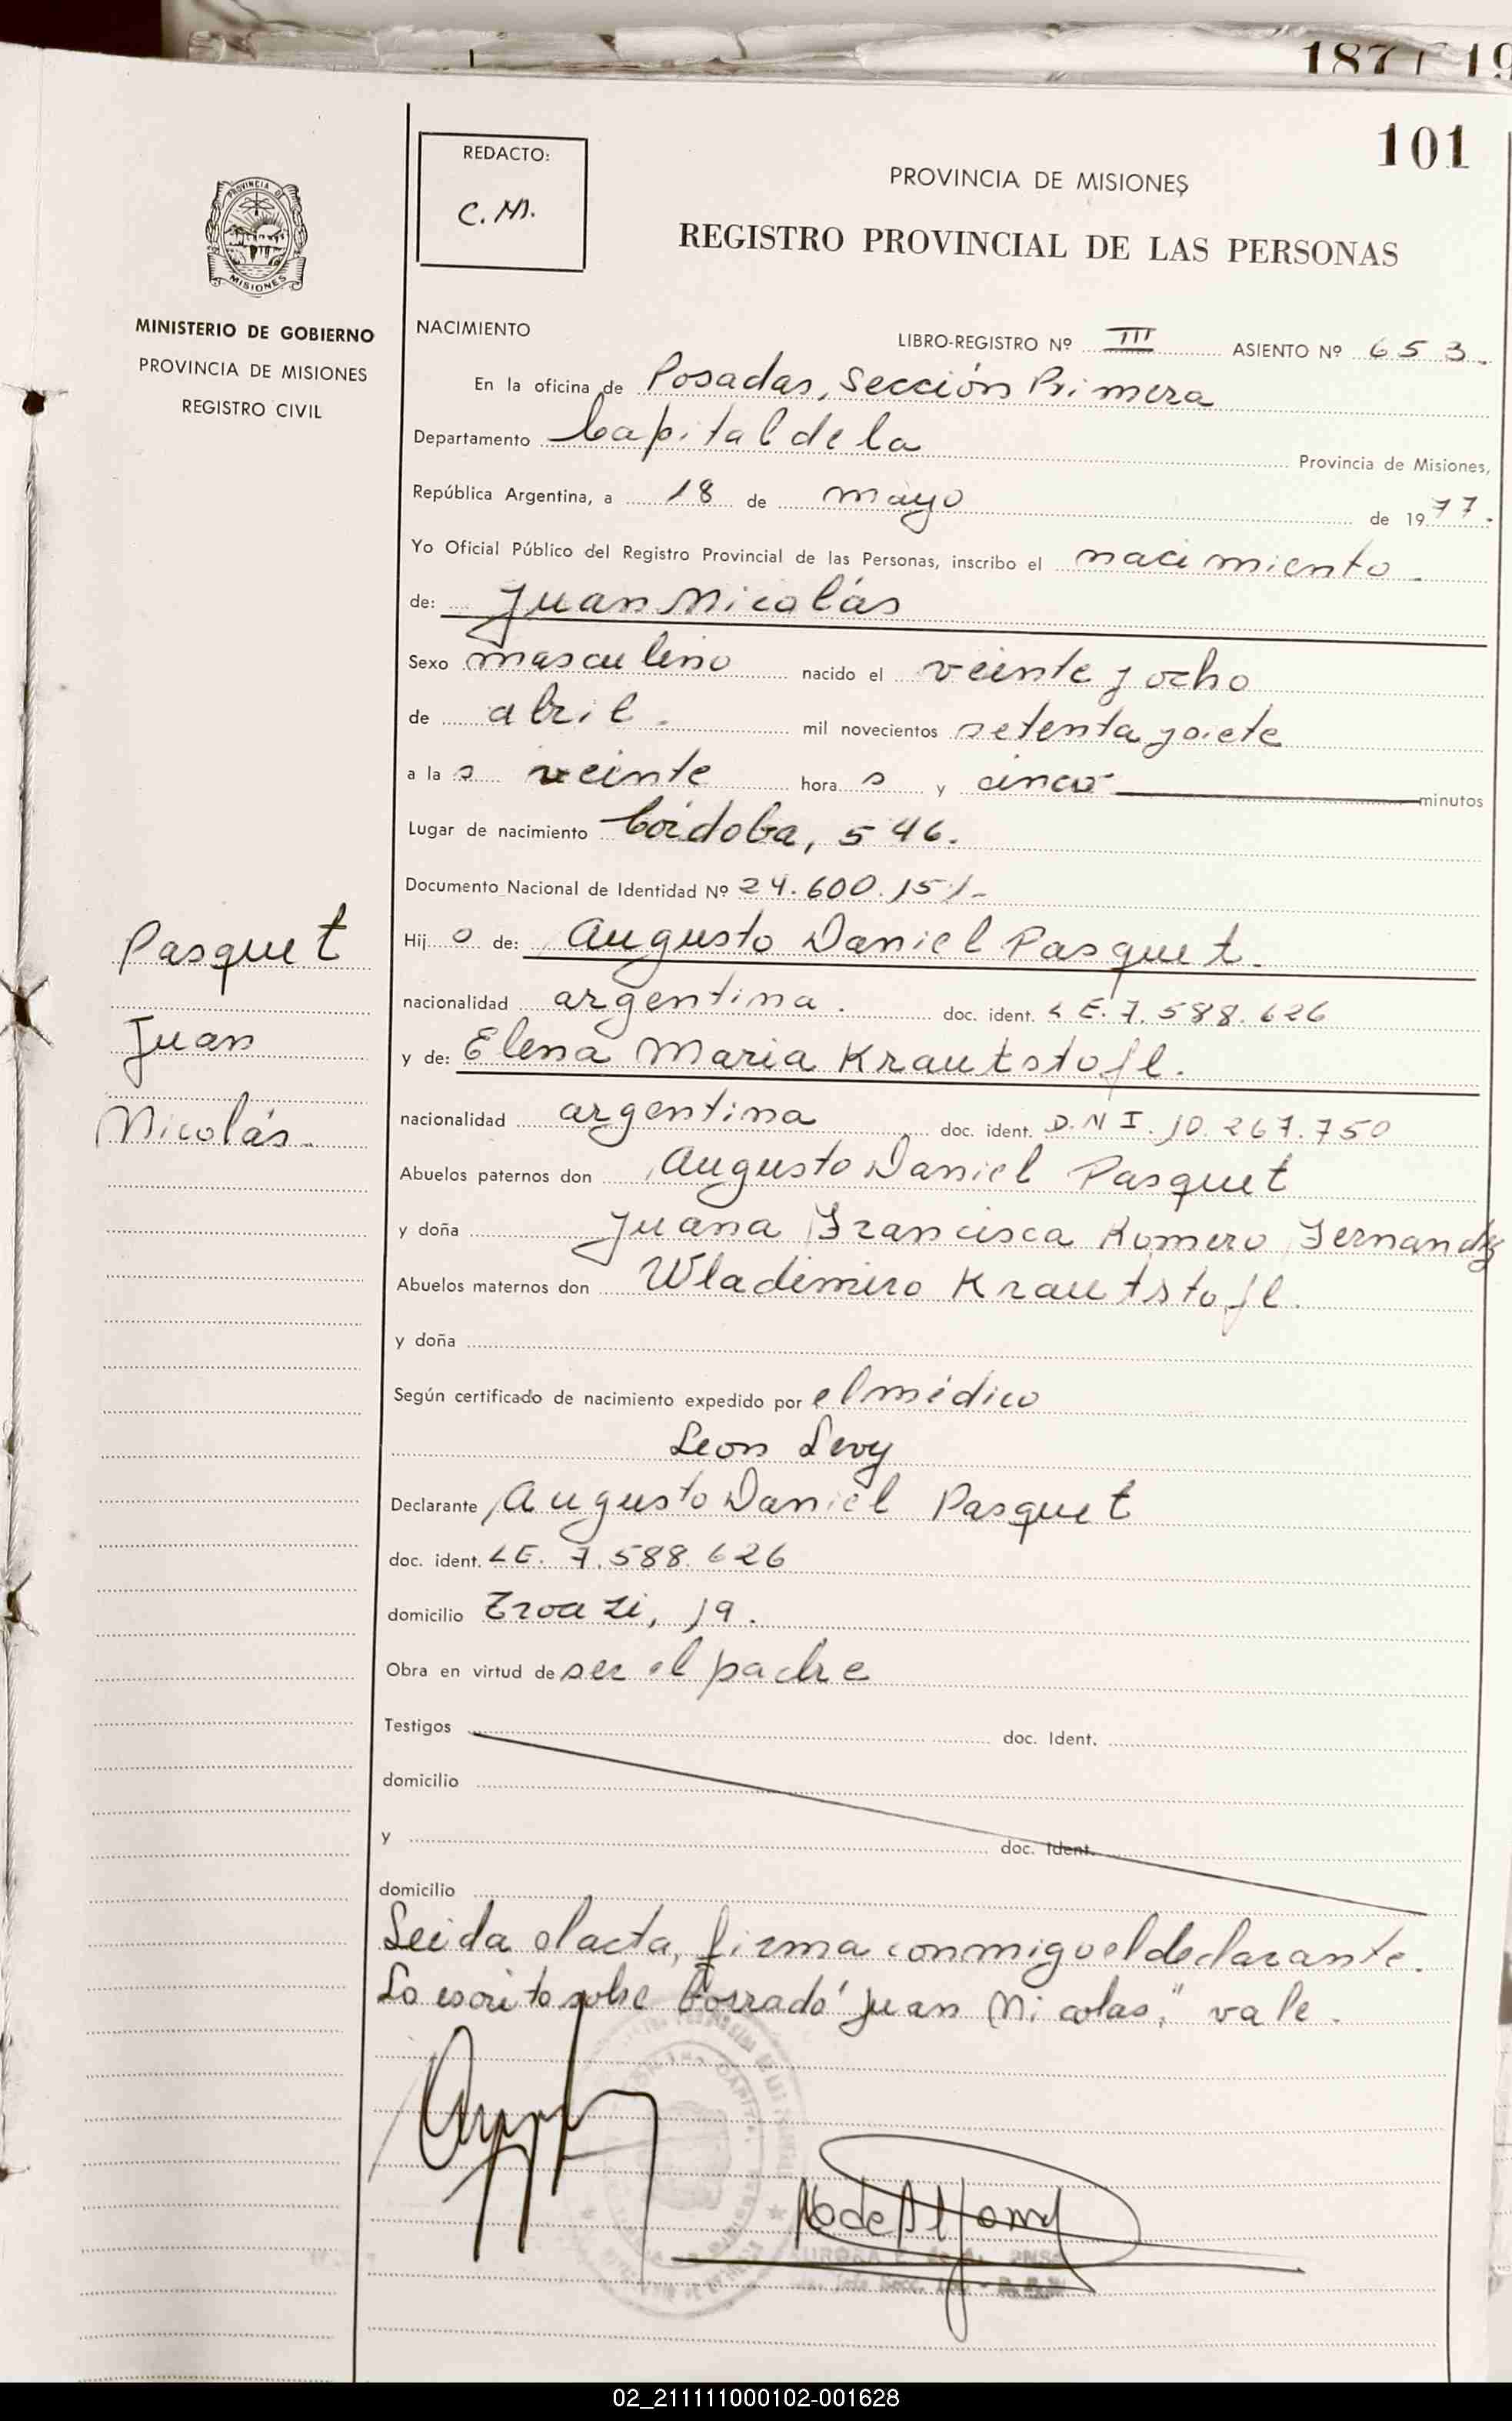 187 19
101
REDACTO:
C.M.
PROVINCIA DE MISIONES
REGISTRO PROVINCIAL DE LAS PERSONAS
PROVINCIA DE
MISIONES
MINISTERIO DE GOBIERNO
PROVINCIA DE MISIONES
REGISTRO CIVIL
NACIMIENTO
LIBRO-REGISTRO Nº III ASIENTO Nº 653.
En la oficina de Posadas, Sección Primera
Departamento Capital de la Provincia de Misiones,
República Argentina, a 18 de mayo de 1977.
Yo Oficial Público del Registro Provincial de las Personas, inscribo el nacimiento
de: Juan Nicolás
Sexo masculino nacido el veinte y ocho
de abril. mil novecientos setenta y siete
a las veinte horas y cinco minutos
Lugar de nacimiento Córdoba, 546.
Documento Nacional de Identidad Nº 24.600.151-
Pasquet
Juan
Nicolás.
Hijo de: Augusto Daniel Pasquet.
nacionalidad argentina. doc. ident. L E. 7.588.626
y de: Elena Maria Krautstofl.
nacionalidad argentina doc. ident. D.N I. 10.267.750
Abuelos paternos don Augusto Daniel Pasquet
y doña Juana Francisca Romero Fernandez
Abuelos maternos don Wladimiro Krautstofl.
y doña
Según certificado de nacimiento expedido por el médico
Leon Levy
Declarante Augusto Daniel Pasquet
doc. ident. LE. 7.588.626
domicilio 19.
Obra en virtud de ser el padre
Testigos doc. Ident.
domicilio
y doc. Ident.
domicilio
Leida el acta, firma conmigo el declarante.
Lo escrito sobre borrado "Juan Nicolas," vale.
02_211111000102-001628